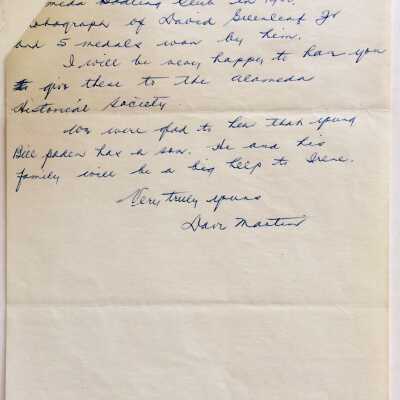 meda Boating Club in 19
otograph of David Greenleaf Jr
and 5 medals won by him.
I will be very happy to have you
to give these to the Alameda
Historical Society.
We were glad to hear that young
Bill Paden has a son. He and his
family will be a big help to Irene.
Very truly yours
Dave Martin